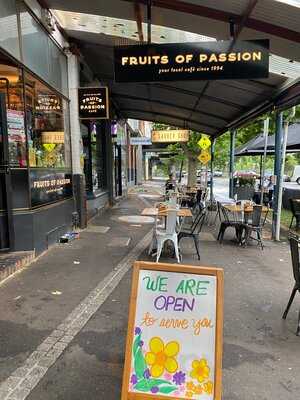 FRUITS OF PASSION
your local cafe since 1994
FRUITS OF
PASSION
CAFE
FRUITS OF PASSION
WE ARE
OPEN
to serve you